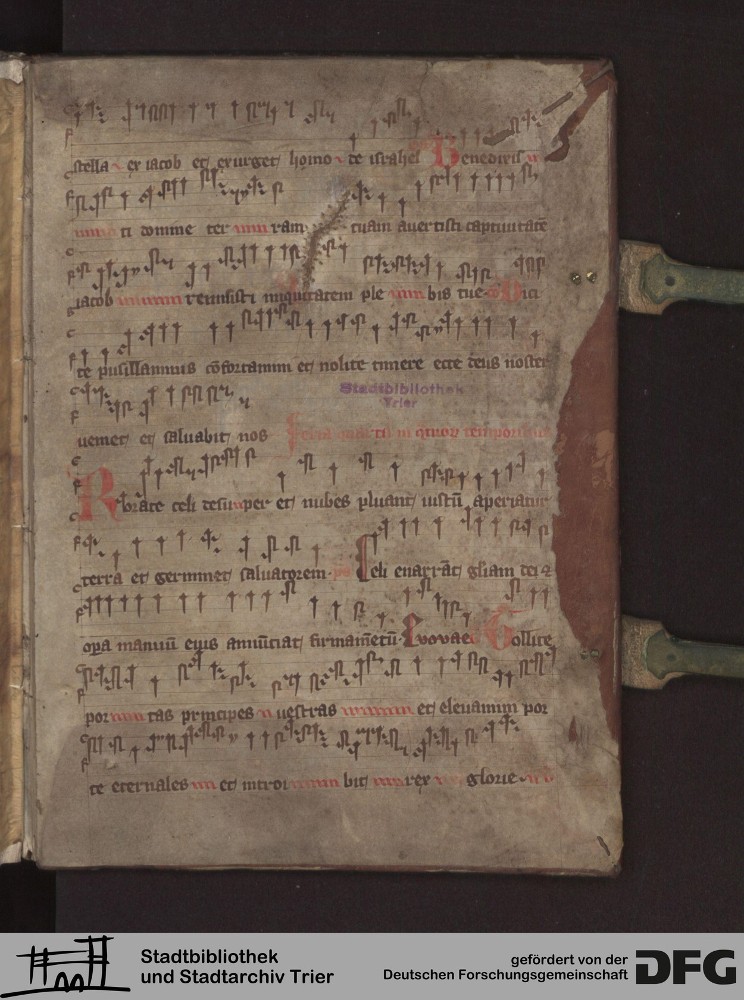 stella ex iacob et exurget homo de israhel Benedixisti
ti domine terram tuam avertisti captivitatē
iacob remisisti iniquitatem plebis tue Dici
te pusillanimis cōfortamini et nolite timere ecce deus noster
veniet et salvabit nos Feria quarta in q̄tuor temporibus
Rorate celi desuper et nubes pluant iustū aperiatur
terra et germinet salvatorem ps Celi enarrāt gl̄iam dei ⁊
opa manuū eius annūciat firmamētū Evovae Tollite
portas principes vestras et elevamini por
te eternales et introibit rex glorie
Stadtbibliothek
Trier
Stadtbibliothek
und Stadtarchiv Trier
gefördert von der
Deutschen Forschungsgemeinschaft
DFG